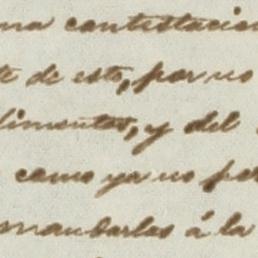 na contestacion
te de esto, por no
limentos, y del
como ya no pa
mandarlas á la